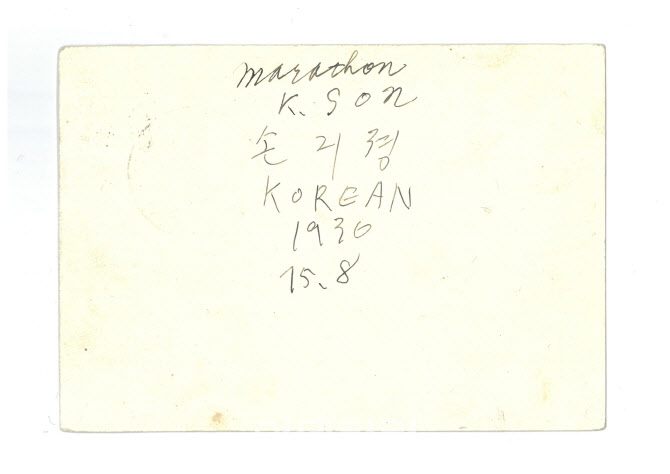 marathon
K. SON
손 긔 졍
KOREAN
1936
15.8